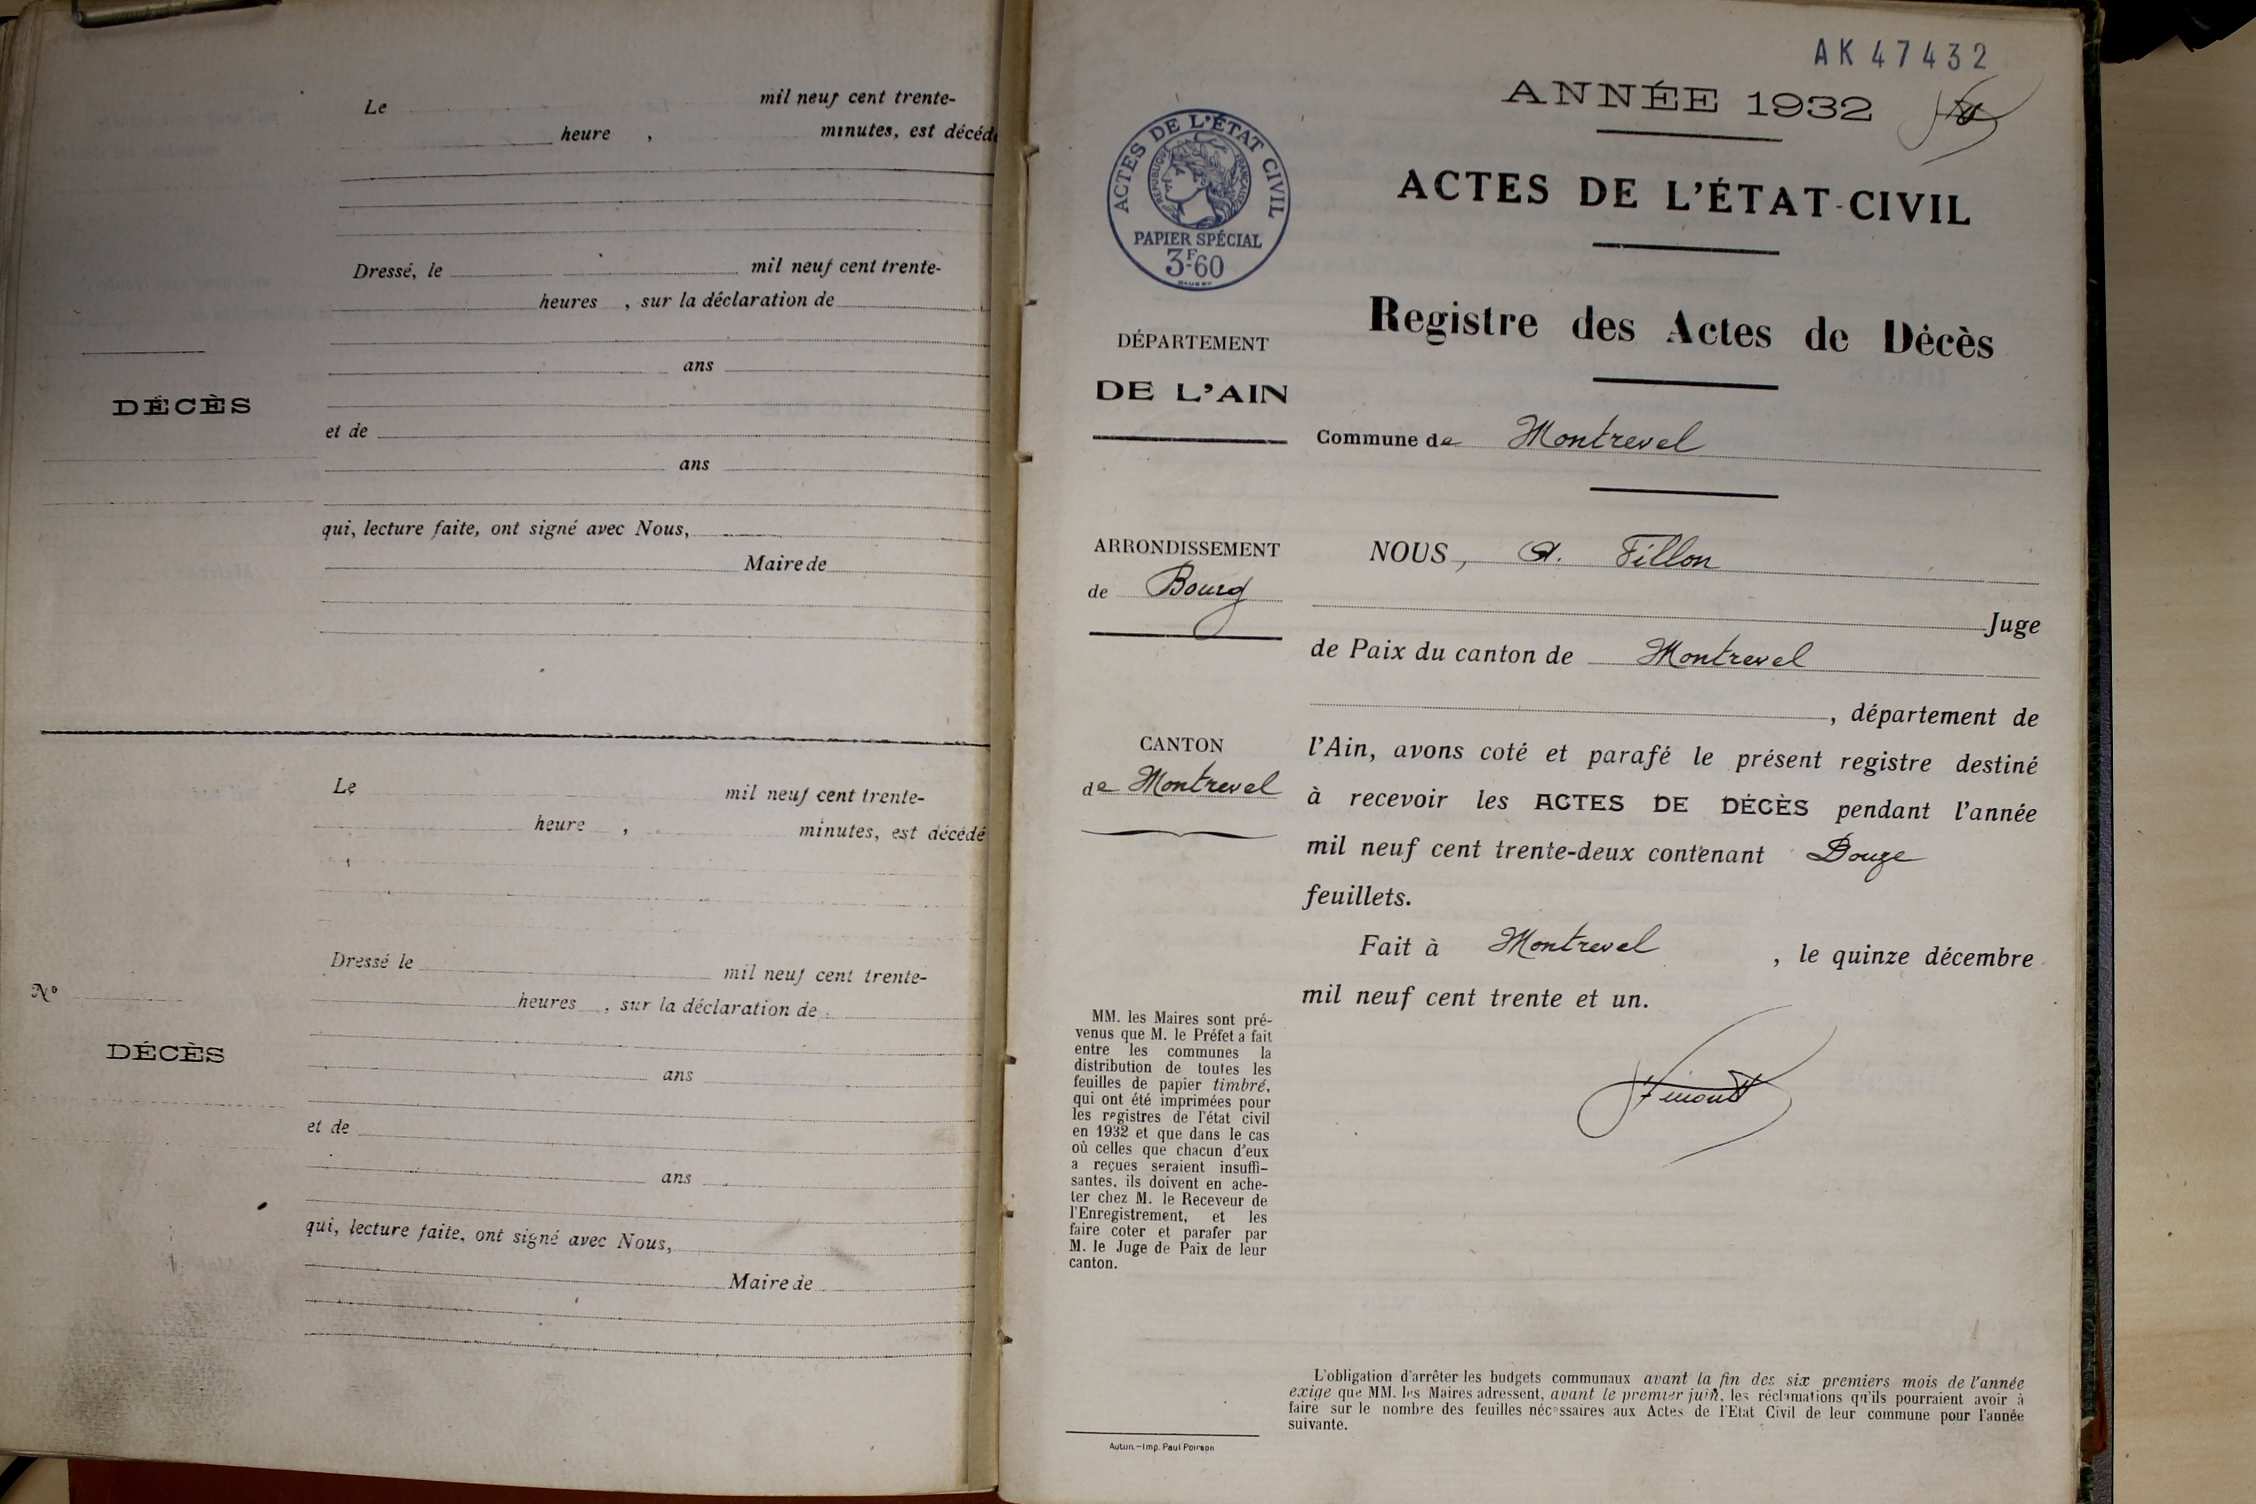 Le mil neuf cent trente-
heure , minutes, est décédé
Dressé, le mil neuf cent trente-
heures , sur la déclaration de
ans
DÉCÈS
et de
ans
qui, lecture faite, ont signé avec Nous,
Maire de
Le mil neuf cent trente-
heure , minutes, est décédé
Dressé le mil neuf cent trente-
N° heures , sur la déclaration de
DÉCÈS
ans
et de
ans
qui, lecture faite, ont signé avec Nous,
Maire de
AK 47432
ANNÉE 1932
ACTES DE L'ÉTAT CIVIL
RÉPUBLIQUE FRANÇAISE
PAPIER SPÉCIAL
3F.60
ACTES DE L'ÉTAT-CIVIL
Registre des Actes de Décès
DÉPARTEMENT
DE L'AIN
Commune de Montrevel
ARRONDISSEMENT
de Bourg
CANTON
de Montrevel
NOUS, A. Fillon
Juge
de Paix du canton de Montrevel
, département de
l'Ain, avons coté et parafé le présent registre destiné
à recevoir les ACTES DE DÉCÈS pendant l'année
mil neuf cent trente-deux contenant Douze
feuillets.
Fait à Montrevel , le quinze décembre
mil neuf cent trente et un.
MM. les Maires sont pré-
venus que M. le Préfet a fait
entre les communes la
distribution de toutes les
feuilles de papier timbré,
qui ont été imprimées pour
les registres de l'état civil
en 1932 et que dans le cas
où celles que chacun d'eux
a reçues seraient insuffi-
santes, ils doivent en ache-
ter chez M. le Receveur de
l'Enregistrement, et les
faire coter et parafer par
M. le Juge de Paix de leur
canton.
L'obligation d'arrêter les budgets communaux avant la fin des six premiers mois de l'année
exige que MM. les Maires adressent, avant le premier juin, les réclamations qu'ils pourraient avoir à
faire sur le nombre des feuilles nécessaires aux Actes de l'Etat Civil de leur commune pour l'année
suivante.
Autun.—Imp. Paul Poirson